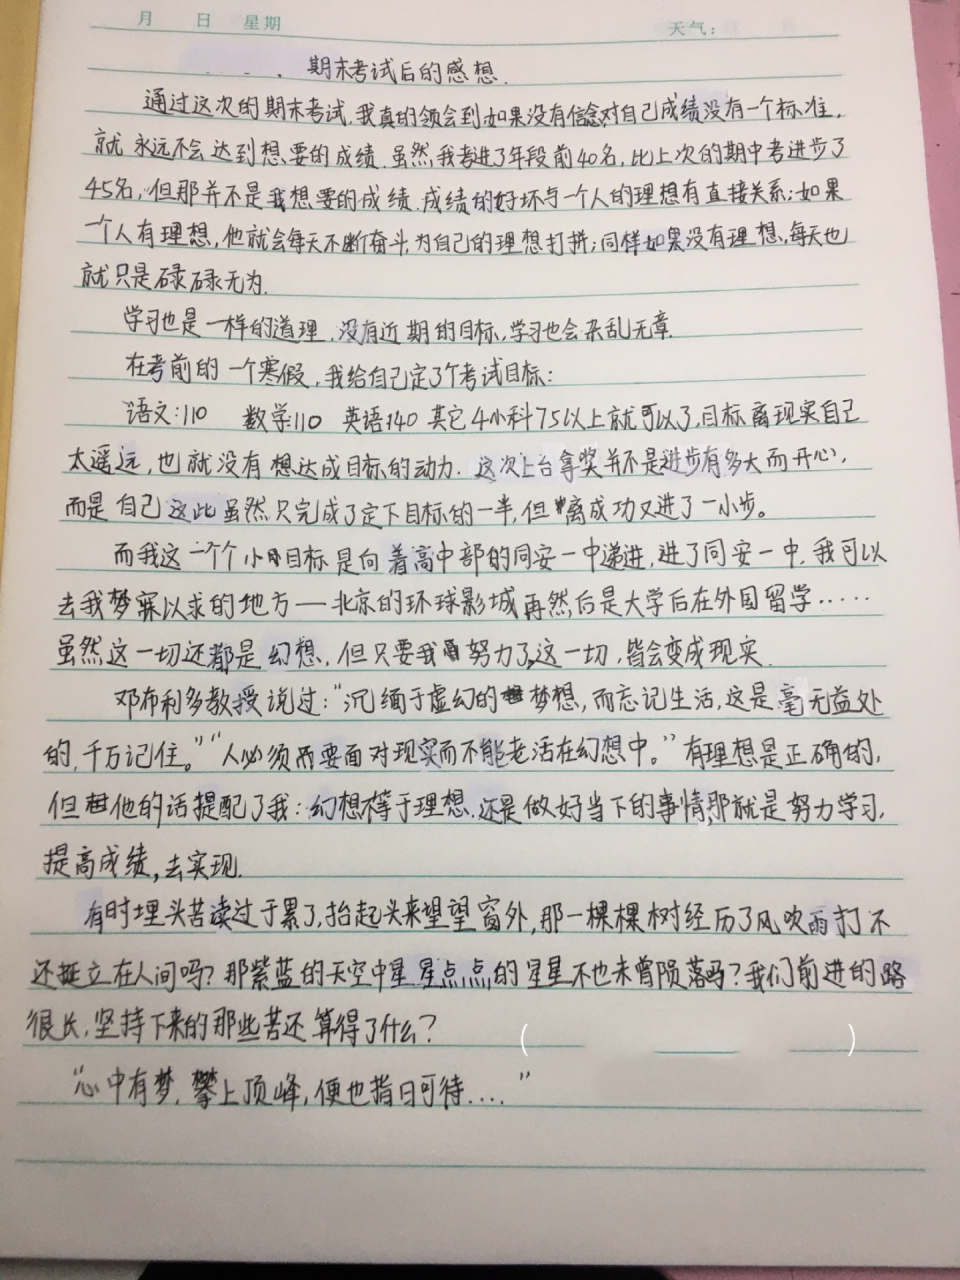 月 日 星期 天气：
期末考试后的感想.
通过这次的期末考试,我真的领会到如果没有信念,对自己成绩没有一个标准,
就永远不会达到想要的成绩.虽然,我考进了年段前40名,比上次的期中考进步了
45名,但那并不是我想要的成绩.成绩的好坏与一个人的理想有直接关系;如果
一个人有理想,他就会每天不断奋斗,为自己的理想打拼;同样如果没有理想,每天也
就只是碌碌无为.
学习也是一样的道理,没有近期的目标,学习也会杂乱无章.
在考前的一个寒假,我给自己定了个考试目标:
语文:110 数学:110 英语:140 其它4小科75以上就可以了,目标离现实自己
太遥远,也就没有想达成目标的动力.这次上台拿奖并不是进步有多大而开心,
而是自己这此虽然只完成了定下目标的一半,但离成功又进了一小步。
而我这一个个小目标是向着高中部的同安一中递进,进了同安一中,我可以
去我梦寐以求的地方—北京的环球影城再然后是大学后在外国留学.....
虽然这一切还都是幻想,但只要我努力了,这一切,皆会变成现实.
邓布利多教授说过:“沉缅于虚幻的梦想,而忘记生活,这是毫无益处
的,千万记住。”“人必须要面对现实而不能老活在幻想中。”有理想是正确的,
但他的话提配了我:幻想不等于理想.还是做好当下的事情,那就是努力学习,
提高成绩,去实现.
有时埋头苦读过于累了,抬起头来望望窗外,那一棵棵树经历了风吹雨打不
还挺立在人间吗?那紫蓝的天空中星星点点的星星不也未曾陨落吗?我们前进的路
很长,坚持下来的那些苦还算得了什么? ( )
“心中有梦,攀上顶峰,便也指日可待....”